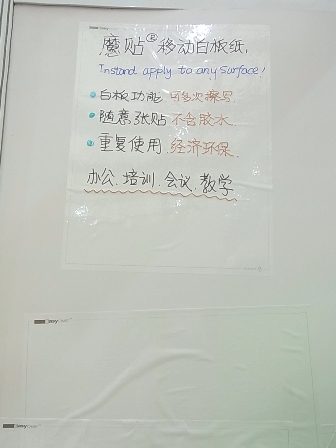 愿贴®移动白板纸,
Instand apply to any surface!
白板功能 可多次擦写
随意张贴 不含胶水
重复使用 经济环保.
办公.培训.会议.教学